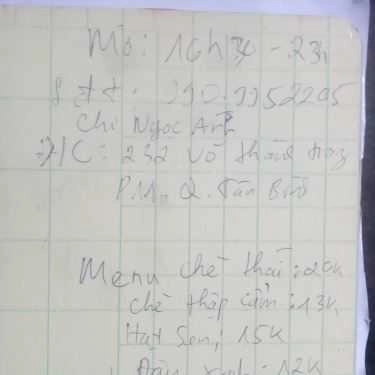 Mở: 16h30 - 23h
Sđt: 090.9952295
Chị Ngọc Anh
Đ/C: 232 Võ Thành Trang
P.11, Q. Tân Bình
Menu chè thái: 20k
chè thập cẩm: 13k
Hạt Sen: 15k
Đậu xanh: 12k